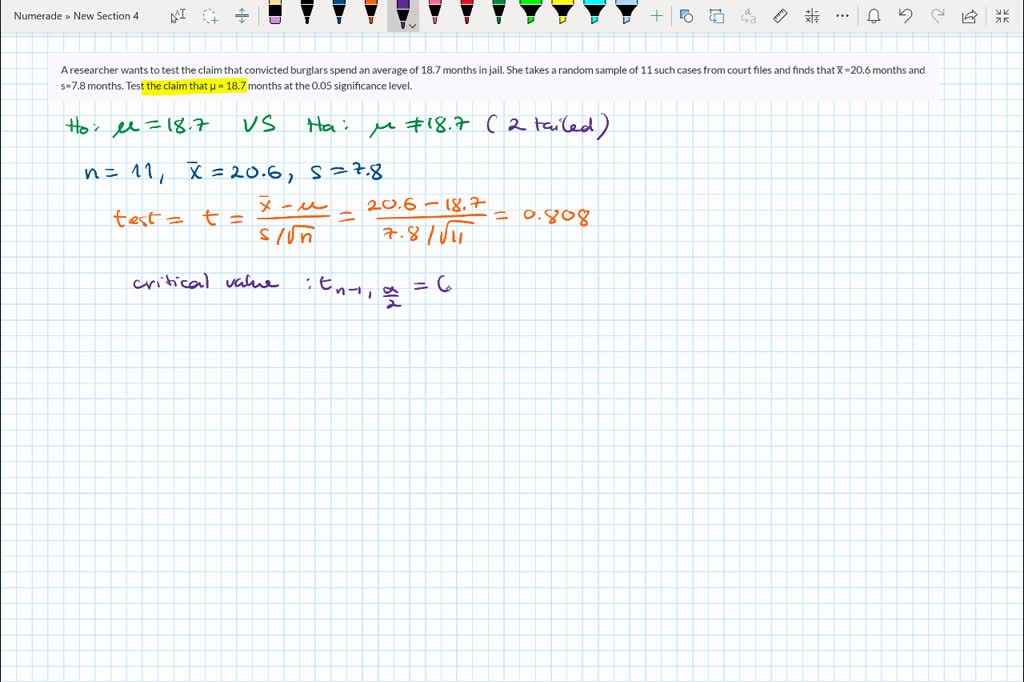 Numerade » New Section 4
A researcher wants to test the claim that convicted burglars spend an average of 18.7 months in jail. She takes a random sample of 11 such cases from court files and finds that x̄ =20.6 months and
s=7.8 months. Test the claim that μ = 18.7 months at the 0.05 significance level.
Ho: μ = 18.7 VS Ha: μ ≠ 18.7 (2 tailed)
n = 11, x̄ = 20.6, s = 7.8
test = t = x̄ - μ / s/√n = 20.6 - 18.7 / 7.8/√11 = 0.808
critical value : t n-1, α/2 = (